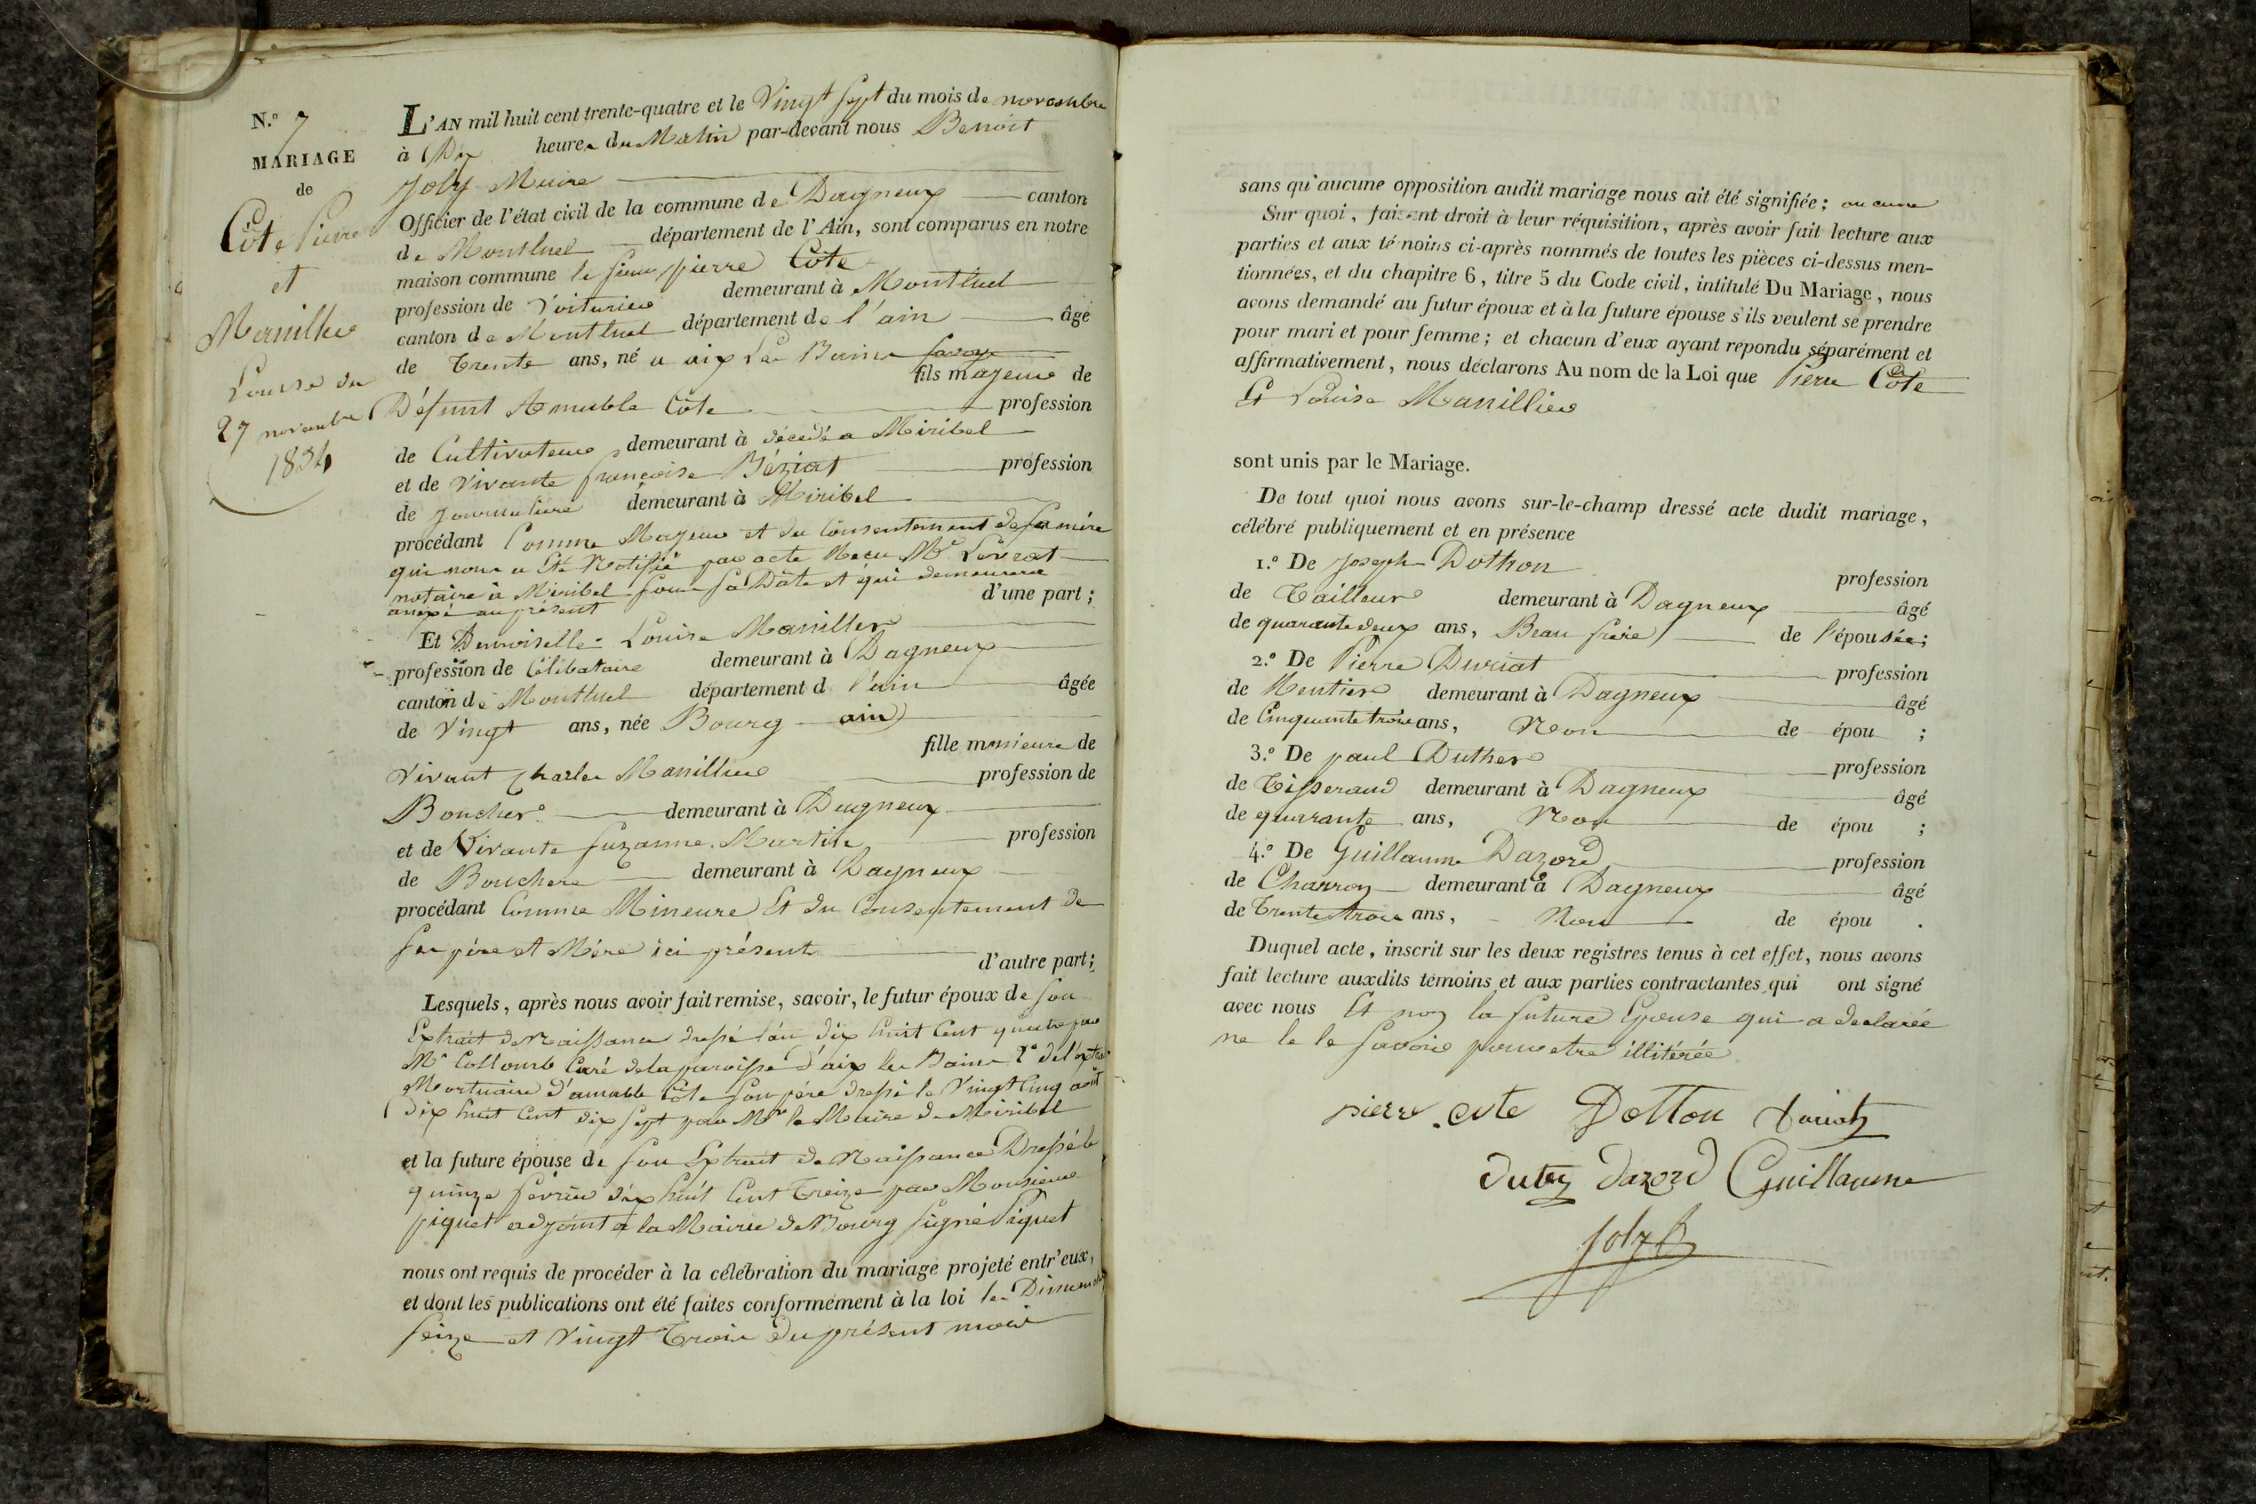 N.º 7
MARIAGE
de
Côte Pierre
et
Manillier
Louise du
27 novembre
1834
L'AN mil huit cent trente-quatre et le Vingt sept du mois de novembre
à Dix heures du Matin par-devant nous Benoit
Joly Maire
Officier de l'état civil de la commune de Dagneux canton
de Montluel département de l'Ain, sont comparus en notre
maison commune le sieur pierre Côte
profession de Voiturier demeurant à Montluel
canton de Montluel département de l'ain âgé
de Trente ans, né a aix Les Bains savoye
fils majeur de
Défunt Amable Côte profession
de Cultivateur demeurant à décédé a Miribel
et de vivante françoise Béziat profession
de Journalière demeurant à Miribel
procédant Comme Majeur et du Consentement de sa mére
qui nous a été Notifié par acte Recu Mᵉ Levrat
notaire à Miribel sous sa Date et qui demeurera
anexé au présent d'une part;
Et Demoiselle Louise Manillier
profession de Célibataire demeurant à Dagneux
canton de Montluel département d l'ain âgée
de Vingt ans, née Bourg ain
fille mineure de
Vivant Charles Manillier profession de
Boucher demeurant à Dagneux
et de Vivante Suzanne Martin profession
de Bouchere demeurant à Dagneux
procédant Comme Mineure Et du Consentement de
ses père et Mére ici présents
d'autre part;
Lesquels, après nous avoir fait remise, savoir, le futur époux de son
Extrait de Naissance dressé l'an dix huit Cent quatre par
Mʳ Collomb Curé de la paroisse d'aix les Bains 2º de l'extrait
Mortuaire d'amable Côte son pére dressé le Vingt Cinq août
Dix huit Cent dix sept par Mʳ le Maire de Miribel
et la future épouse de son Extrait de Naissance Dressé le
quinze février dix huit Cent Treize par Monsieur
piquet adjoint a la Mairie de Bourg signé Piquet
nous ont requis de procéder à la célébration du mariage projeté entr'eux,
et dont les publications ont été faites conformément à la loi les Dimanches
seize et Vingt Trois du présent mois
sans qu'aucune opposition audit mariage nous ait été signifiée; aucune
Sur quoi, faisant droit à leur réquisition, après avoir fait lecture aux
parties et aux témoins ci-après nommés de toutes les pièces ci-dessus men-
tionnées, et du chapitre 6, titre 5 du Code civil, intitulé Du Mariage, nous
avons demandé au futur époux et à la future épouse s'ils veulent se prendre
pour mari et pour femme; et chacun d'eux ayant répondu séparément et
affirmativement, nous déclarons Au nom de la Loi que Pierre Côte
Et Louise Manillier
sont unis par le Mariage.
De tout quoi nous avons sur-le-champ dressé acte dudit mariage,
célébré publiquement et en présence
1.º De Joseph Dothon profession
de Tailleur demeurant à Dagneux âgé
de quarante deux ans, Beau frère de l'épousée;
2.º De Pierre Duriat profession
de Rentier demeurant à Dagneux âgé
de Cinquante trois ans, Non de épou ;
3.º De paul Duther profession
de Tisserand demeurant à Dagneux âgé
de quarante ans, Non de épou ;
4.º De Guillaume Dazord profession
de Charron demeurant à Dagneux âgé
de Trente trois ans, Non de épou .
Duquel acte, inscrit sur les deux registres tenus à cet effet, nous avons
fait lecture auxdits témoins et aux parties contractantes qui ont signé
avec nous Et non la future Epouse qui a declarée
ne le le savoir pour etre illitérée
pierre cote Dotton Duriat
Duter Dazord Guillaume
Joly B